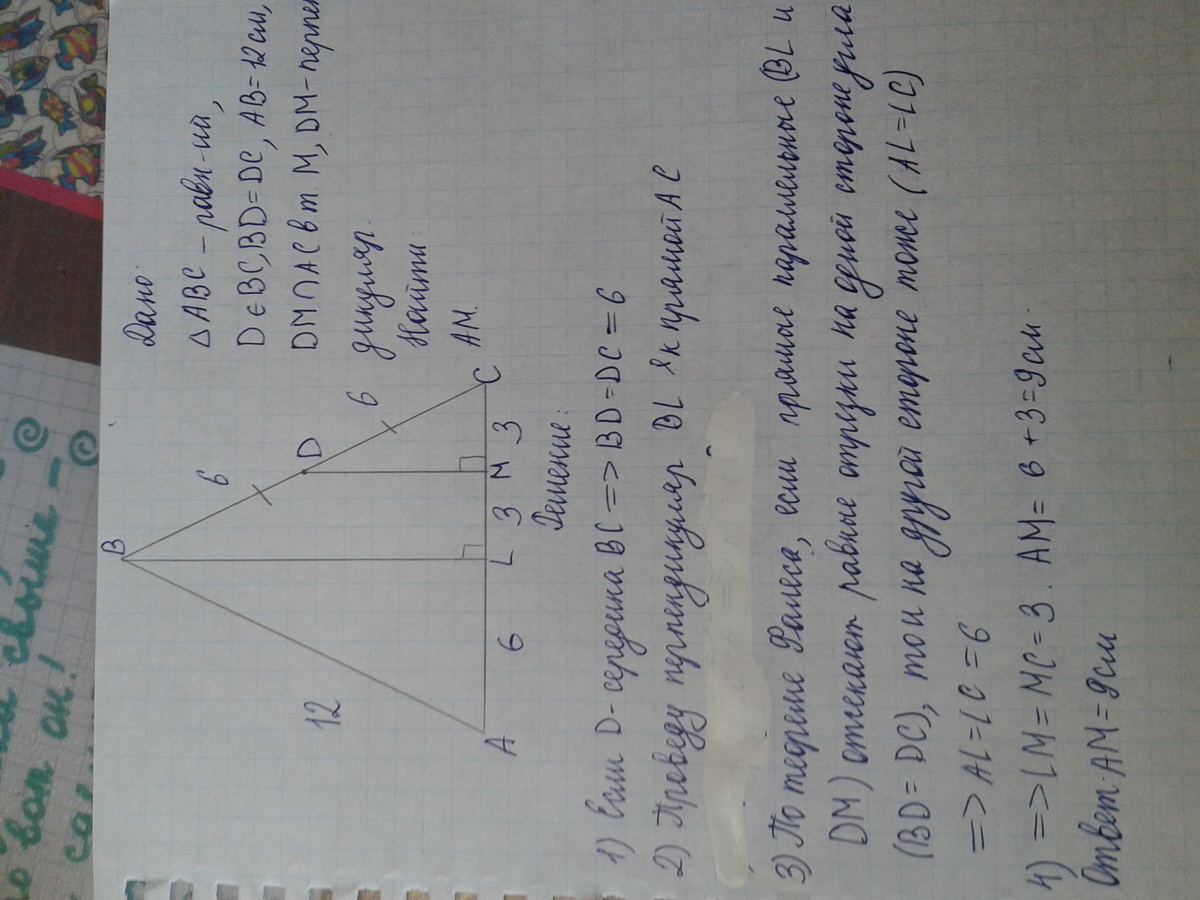 Дано:
△ABC – равн-ий,
D ∈ BC, BD = DC, AB = 12 см,
DM ∩ AC в т. M, DM – перпен
дикуляр.
Найти:
AM.
B
6
D
6
12
A
6
L
3
M
3
C
Решение:
1) Если D - середина BC => BD = DC = 6
2) Проведу перпендикуляр BL к прямой AC
3) По теореме Фалеса, если прямые параллельные (BL и
DM) отсекают равные отрезки на одной стороне угла
(BD = DC), то и на другой стороне тоже (AL = LC)
=> AL = LC = 6
4) => LM = MC = 3. AM = 6 + 3 = 9 см.
Ответ: AM = 9 см
свыше –
во вам он!